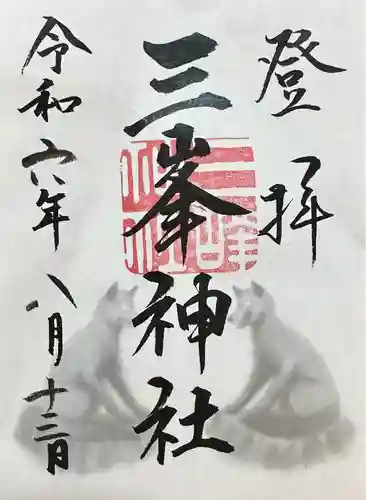 登拝
三峯神社
令和六年八月十三日